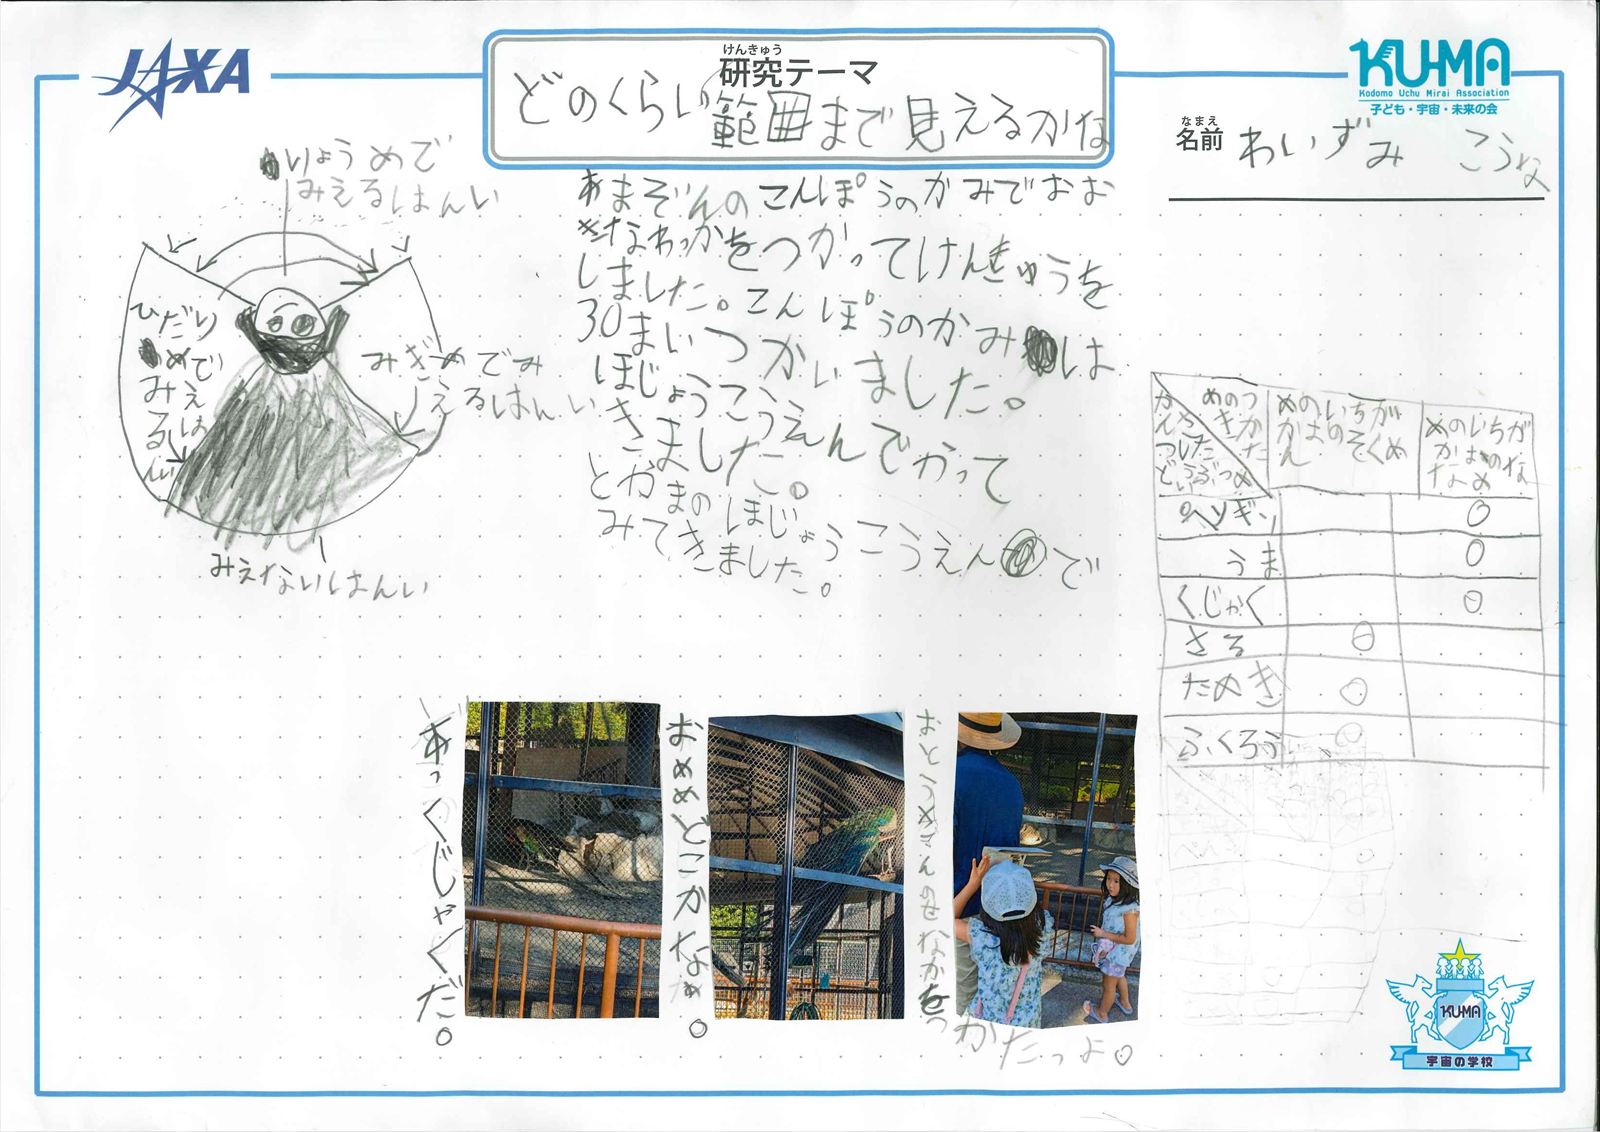 JAXA
けんきゅう
研究テーマ
どのくらい範囲まで見えるかな
KU-MA
Kodomo Uchu Mirai Association
子ども・宇宙・未来の会
なまえ
名前
わいずみ こうな
りょうめで
みえるはんい
ひだり
めで
みえ
るは
んい
みぎめでみ
えるはんい
みえないはんい
あまぞんのこんぽうのかみでおお
きなわっかをつかってけんきゅうを
しました。こんぽうのかみは
30まいつかいました。
ほじょうこうえんでかって
きました。
とかまのほじょうこうえんで
みてきました。
めのつ
きかた
かんさ
つした
どうぶつ
めのいちが
かおの
めのいちが
かおのな
なめ
ペンギン
うま
くじゃく
さる
たぬき
ふくろう
あっくじゃくだ。
おめめどこかなぁ。
おとうさんのせなかをつ
かったよ。
KUMA
宇宙の学校